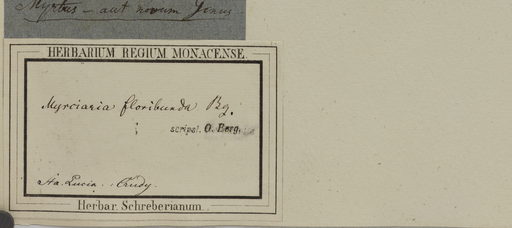 Myrtus – aut novum Genus
HERBARIUM REGIUM MONACENSE.
Myrciaria floribunda Bg.
scripsi. O. Berg.
Sta. Lucia. Crudy.
Herbar. Schreberianum.